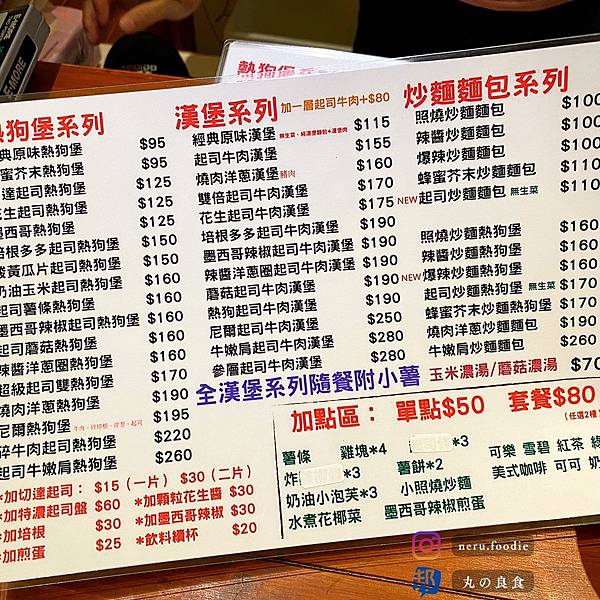 熱狗堡系列
經典原味熱狗堡 $95
蜂蜜芥末熱狗堡 $95
達起司熱狗堡 $125
花生起司熱狗堡 $125
墨西哥熱狗堡 $125
培根多多起司熱狗堡 $150
酸黃瓜片起司熱狗堡 $150
奶油玉米起司熱狗堡 $160
起司薯條熱狗堡 $160
墨西哥辣椒起司熱狗堡 $160
起司蘑菇熱狗堡 $160
辣醬洋蔥圈熱狗堡 $160
超級起司雙熱狗堡 $160
燒肉洋蔥熱狗堡 $190
尼爾熱狗堡 $195
碎牛肉起司熱狗堡 $220
起司牛嫩肩熱狗堡 $260
*加切達起司： $15 (一片) $30 (二片)
*加特濃起司盤 $60 *加顆粒花生醬 $30
*加培根 $30 *加墨西哥辣椒 $30
*加煎蛋 $25 *飲料續杯 $20
漢堡系列 加一層起司牛肉+$80
經典原味漢堡 無生菜、純漢堡麵包+漢堡肉 $115
起司牛肉漢堡 $155
燒肉洋蔥漢堡 豬肉 $160
雙倍起司牛肉漢堡 $170
花生起司牛肉漢堡 $175
培根多多起司牛肉漢堡 $190
墨西哥辣椒起司牛肉漢堡 $190
辣醬洋蔥圈起司牛肉漢堡 $190
蘑菇起司牛肉漢堡 $190
熱狗起司牛肉漢堡 $190
尼爾起司牛肉漢堡 $250
牛嫩肩起司牛肉漢堡 $280
參層起司牛肉漢堡 $280
全漢堡系列隨餐附小薯
炒麵麵包系列
照燒炒麵麵包 $100
辣醬炒麵麵包 $100
爆辣炒麵麵包 $100
蜂蜜芥末炒麵麵包 $110
NEW 起司炒麵麵包 無生菜 $110
照燒炒麵熱狗堡 $160
辣醬炒麵熱狗堡 $160
NEW 爆辣炒麵熱狗堡 $160
起司炒麵熱狗堡 無生菜 $170
蜂蜜芥末炒麵熱狗堡 $170
燒肉洋蔥炒麵麵包 $190
牛嫩肩炒麵麵包 $260
玉米濃湯/蘑菇濃湯 $70
加點區： 單點$50 套餐$80
(任選2樓
薯條 雞塊*4 *3 可樂 雪碧 紅茶 綠
炸 *3 薯餅*2 美式咖啡 可可 奶
奶油小泡芙*3 小照燒炒麵
水煮花椰菜 墨西哥辣椒煎蛋
neru.foodie
丸の良食